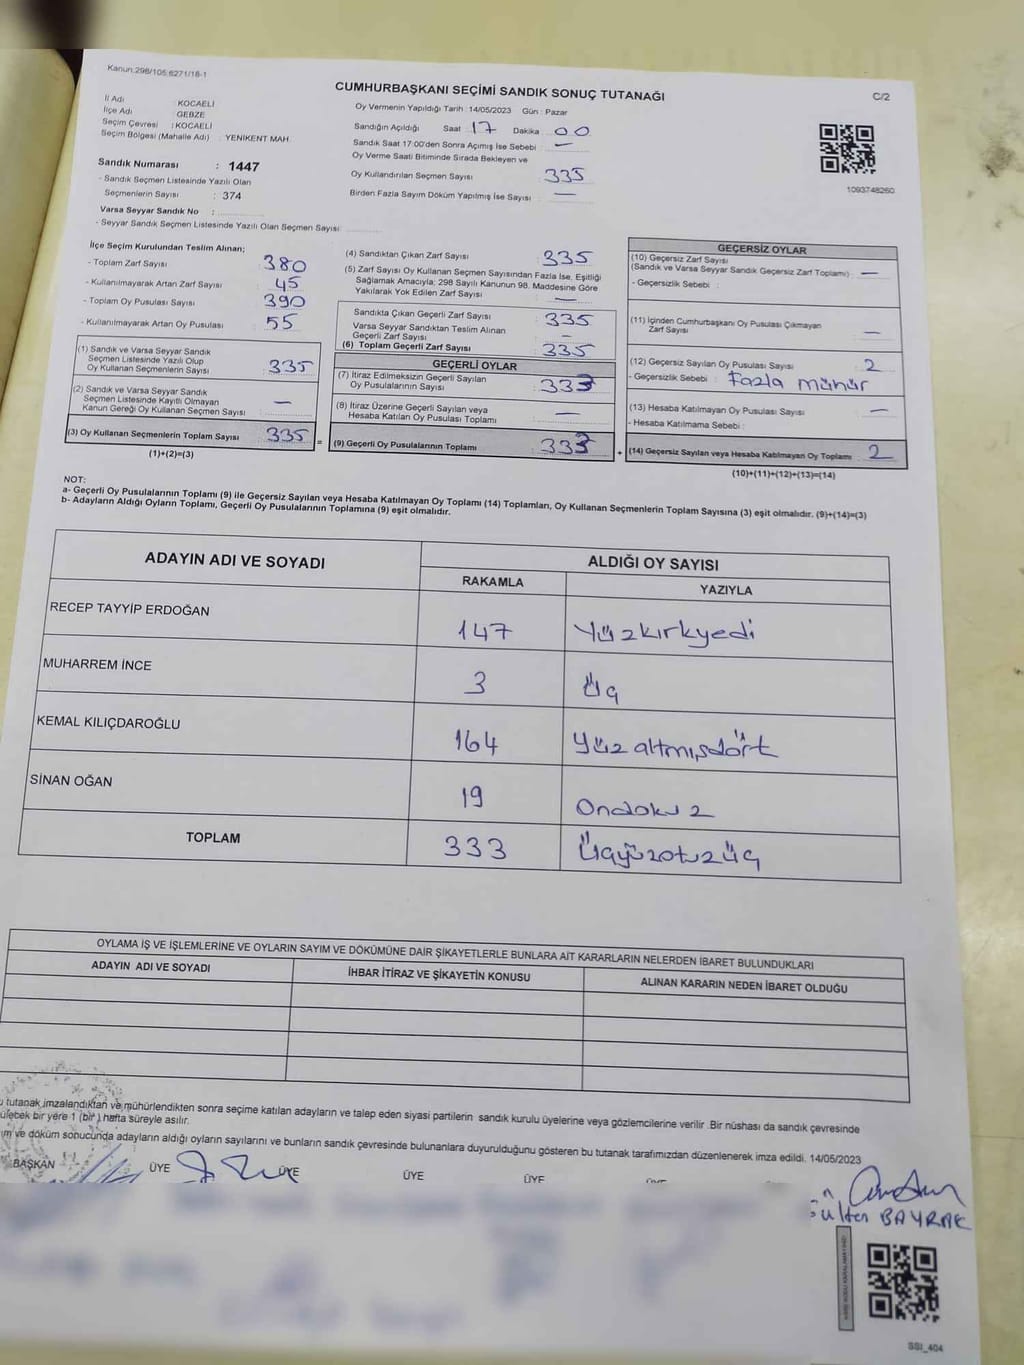 Kanun:298/105;6271/18-1
CUMHURBAŞKANI SEÇİMİ SANDIK SONUÇ TUTANAĞI
C/2
İl Adı : KOCAELİ
İlçe Adı : GEBZE
Seçim Çevresi : KOCAELİ
Seçim Bölgesi (Mahalle Adı) : YENIKENT MAH.
Oy Vermenin Yapıldığı Tarih : 14/05/2023 Gün : Pazar
Sandığın Açıldığı Saat : 17 Dakika : 00
Sandık Saat 17:00'den Sonra Açılmış İse Sebebi : —
Oy Verme Saati Bitiminde Sırada Bekleyen ve
Oy Kullandırılan Seçmen Sayısı : 335
Birden Fazla Sayım Döküm Yapılmış İse Sayısı : —
1093748260
Sandık Numarası : 1447
- Sandık Seçmen Listesinde Yazılı Olan
Seçmenlerin Sayısı : 374
Varsa Seyyar Sandık No :
- Seyyar Sandık Seçmen Listesinde Yazılı Olan Seçmen Sayısı :
İlçe Seçim Kurulundan Teslim Alınan;
- Toplam Zarf Sayısı : 380
- Kullanılmayarak Artan Zarf Sayısı : 45
- Toplam Oy Pusulası Sayısı : 390
- Kullanılmayarak Artan Oy Pusulası : 55
(1) Sandık ve Varsa Seyyar Sandık
Seçmen Listesinde Yazılı Olup
Oy Kullanan Seçmenlerin Sayısı : 335
(2) Sandık ve Varsa Seyyar Sandık
Seçmen Listesinde Kayıtlı Olmayan
Kanun Gereği Oy Kullanan Seçmen Sayısı : —
(3) Oy Kullanan Seçmenlerin Toplam Sayısı : 335 =
(1)+(2)=(3)
(4) Sandıktan Çıkan Zarf Sayısı : 335
(5) Zarf Sayısı Oy Kullanan Seçmen Sayısından Fazla İse, Eşitliği
Sağlamak Amacıyla; 298 Sayılı Kanunun 98. Maddesine Göre
Yakılarak Yok Edilen Zarf Sayısı : —
Sandıkta Çıkan Geçerli Zarf Sayısı : 335
Varsa Seyyar Sandıktan Teslim Alınan
Geçerli Zarf Sayısı : —
(6) Toplam Geçerli Zarf Sayısı : 335
GEÇERLİ OYLAR
(7) İtiraz Edilmeksizin Geçerli Sayılan
Oy Pusulalarının Sayısı : 333
(8) İtiraz Üzerine Geçerli Sayılan veya
Hesaba Katılan Oy Pusulası Toplamı : —
(9) Geçerli Oy Pusulalarının Toplamı : 333 +
GEÇERSİZ OYLAR
(10) Geçersiz Zarf Sayısı
(Sandık ve Varsa Seyyar Sandık Geçersiz Zarf Toplamı) : —
- Geçersizlik Sebebi :
(11) İçinden Cumhurbaşkanı Oy Pusulası Çıkmayan
Zarf Sayısı : —
(12) Geçersiz Sayılan Oy Pusulası Sayısı : 2
- Geçersizlik Sebebi : Fazla mühür
(13) Hesaba Katılmayan Oy Pusulası Sayısı : —
- Hesaba Katılmama Sebebi :
(14) Geçersiz Sayılan veya Hesaba Katılmayan Oy Toplamı : 2
(10)+(11)+(12)+(13)=(14)
NOT:
a- Geçerli Oy Pusulalarının Toplamı (9) ile Geçersiz Sayılan veya Hesaba Katılmayan Oy Toplamı (14) Toplamları, Oy Kullanan Seçmenlerin Toplam Sayısına (3) eşit olmalıdır. (9)+(14)=(3)
b- Adayların Aldığı Oyların Toplamı, Geçerli Oy Pusulalarının Toplamına (9) eşit olmalıdır.
ADAYIN ADI VE SOYADI
ALDIĞI OY SAYISI
RAKAMLA YAZIYLA
RECEP TAYYİP ERDOĞAN 147 Yüzkırkyedi
MUHARREM İNCE 3 Üç
KEMAL KILIÇDAROĞLU 164 Yüzaltmışdört
SİNAN OĞAN 19 Ondokuz
TOPLAM 333 Üçyüzotuzüç
OYLAMA İŞ VE İŞLEMLERİNE VE OYLARIN SAYIM VE DÖKÜMÜNE DAİR ŞİKAYETLERLE BUNLARA AİT KARARLARIN NELERDEN İBARET BULUNDUKLARI
ADAYIN ADI VE SOYADI İHBAR İTİRAZ VE ŞİKAYETİN KONUSU ALINAN KARARIN NEDEN İBARET OLDUĞU
u tutanak imzalandıktan ve mühürlendikten sonra seçime katılan adayların ve talep eden siyasi partilerin sandık kurulu üyelerine veya gözlemcilerine verilir .Bir nüshası da sandık çevresinde
ülecek bir yere 1 (bir ) hafta süreyle asılır.
ım ve döküm sonucunda adayların aldığı oyların sayılarını ve bunların sandık çevresinde bulunanlara duyurulduğunu gösteren bu tutanak tarafımızdan düzenlenerek imza edildi. 14/05/2023
BAŞKAN ÜYE ÜYE ÜYE ÜYE
Gülten BAYRAK
SSI_404